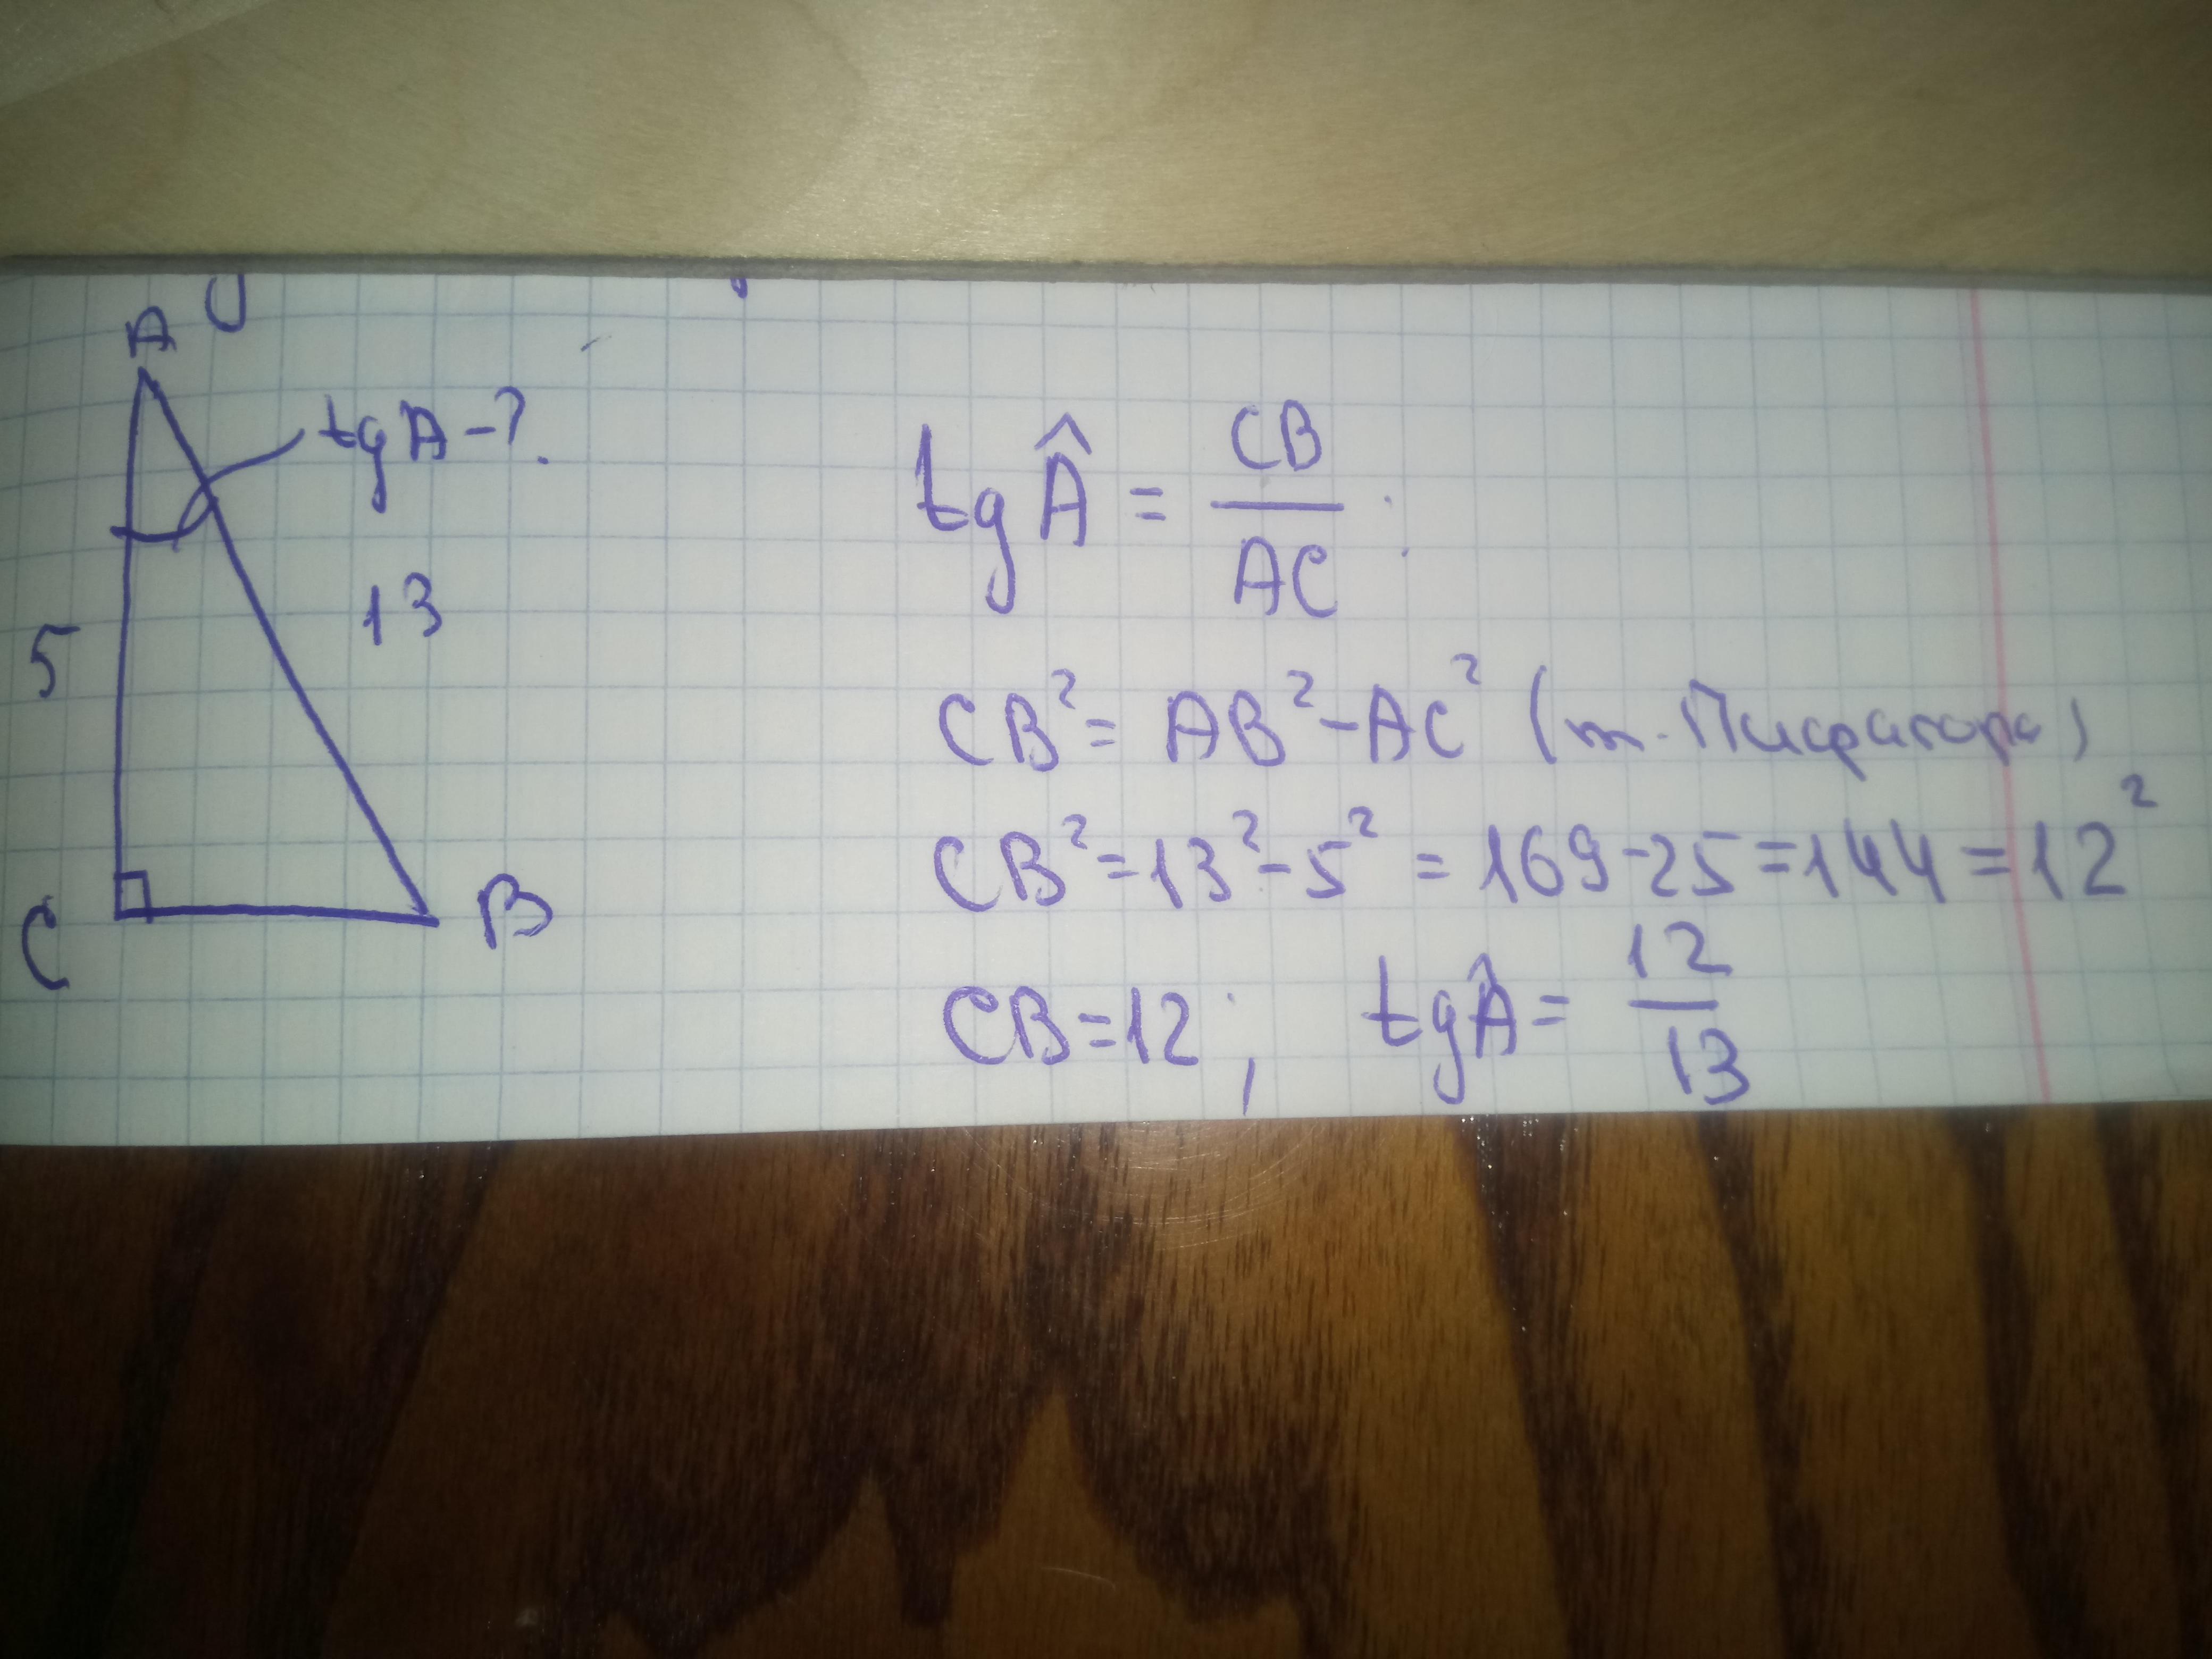 A
tg A - ?.
5
13
C
B
tg Â = CB / AC ;
CB² = AB² - AC² (т. Пифагора)
CB² = 13² - 5² = 169 - 25 = 144 = 12²
CB = 12 ; tg Â = 12 / 13